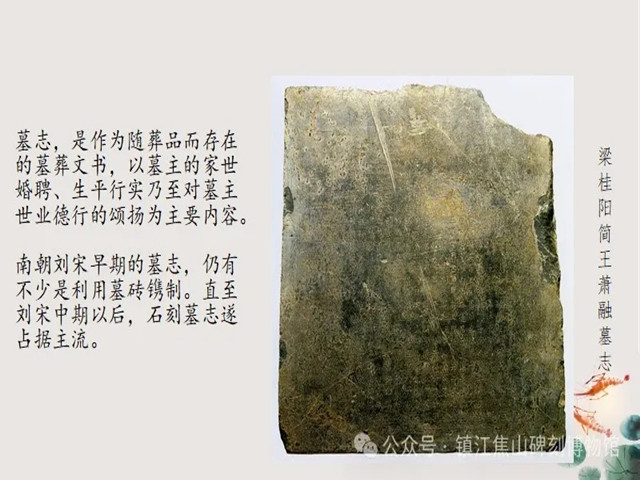 墓志，是作为随葬品而存在
的墓葬文书，以墓主的家世
婚聘、生平行实乃至对墓主
世业德行的颂扬为主要内容。
南朝刘宋早期的墓志，仍有
不少是利用墓砖镌制。直至
刘宋中期以后，石刻墓志遂
占据主流。
梁桂阳简王萧融墓志
公众号·镇江焦山碑刻博物馆